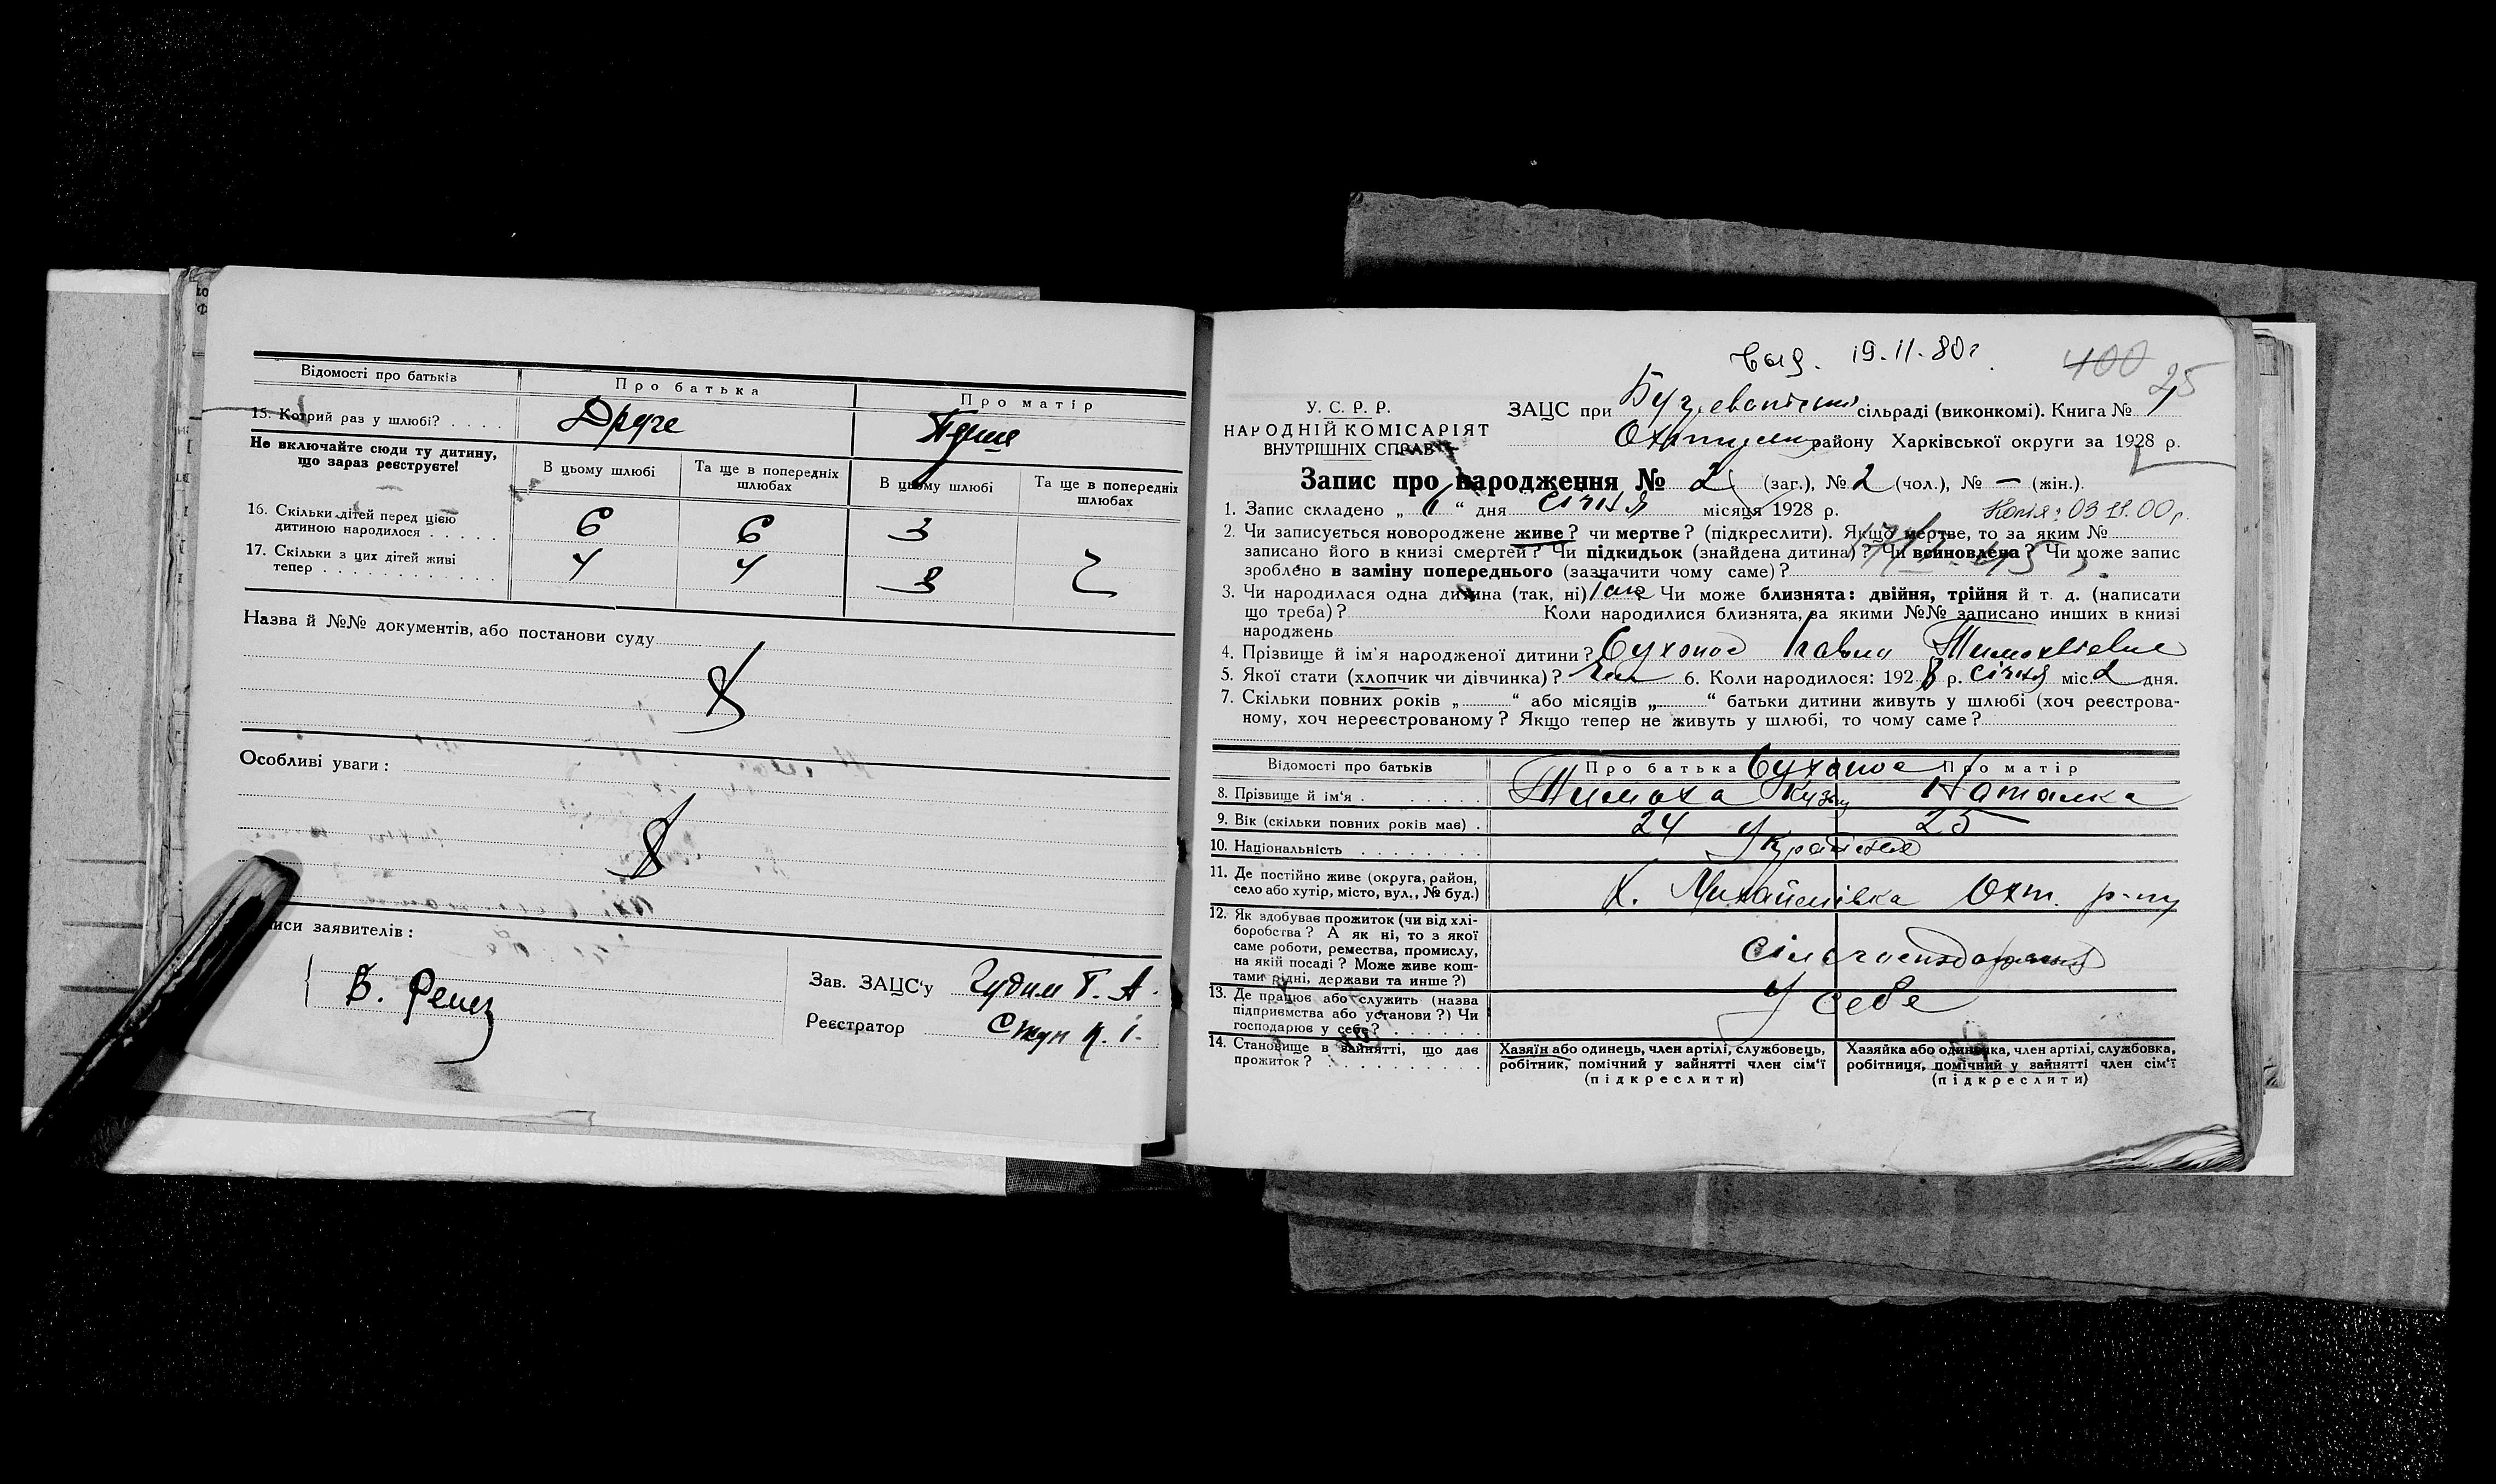 Відомості про батьків
Про батька
Про матір
15. Котрий раз у шлюбі? . . . .
Друге
Перше
Не включайте сюди ту дитину,
що зараз реєструєте!
В цьому шлюбі
Та ще в попередніх
шлюбах
В цьому шлюбі
Та ще в попередніх
шлюбах
16. Скільки дітей перед цією
дитиною народилося . . . . .
6
6
3
17. Скільки з цих дітей живі
тепер . . . . . . . . . . . .
4
4
3
Назва й №№ документів, або постанови суду
Особливі уваги:
иси заявителів:
Зав. ЗАЦС'у Гудим Т. А.
Реєстратор
19.11.80г
400
25
У. С. Р. Р.
НАРОДНІЙ КОМІСАРІЯТ
ВНУТРІШНІХ СПРАВ
ЗАЦС при сільраді (виконкомі). Книга № 1
району Харківської округи за 1928 р.
Запис про народження № 2 (заг.), № 2 (чол.), № — (жін.).
1. Запис складено „ 6 “ дня січня місяця 1928 р.
Копія: 03.11.00р.
2. Чи записується новороджене живе? чи мертве? (підкреслити). Якщо мертве, то за яким №
записано його в книзі смертей? Чи підкидьок (знайдена дитина)? Чи всиновлена? Чи може запис
зроблено в заміну попереднього (зазначити чому саме)?
3. Чи народилася одна дитина (так, ні) Так Чи може близнята: двійня, трійня й т. д. (написати
що треба)? Коли народилися близнята, за якими №№ записано инших в книзі
народжень
4. Прізвище й ім'я народженої дитини? Сухонос Павло Тимохвієвич
5. Якої стати (хлопчик чи дівчинка)? 6. Коли народилося: 1928 р. січня міс. 2 дня.
7. Скільки повних років „ “ або місяців „ “ батьки дитини живуть у шлюбі (хоч реєстрова-
ному, хоч нереєстрованому? Якщо тепер не живуть у шлюбі, то чому саме?
Відомості про батьків
Про батька
Сухонос
Про матір
8. Прізвище й ім'я . . . . . . . .
Тимоха Кузьм
Наталка
9. Вік (скільки повних років має) .
24
25
10. Національність . . . . . . . .
Українська
11. Де постійно живе (округа, район,
село або хутір, місто, вул., № буд.)
Х. Михайлівка Охт. р-ну
12. Як здобуває прожиток (чи від хлі-
боробства? А як ні, то з якої
саме роботи, ремества, промислу,
на якій посаді? Може живе кош-
тами рідні, держави та инше?)
13. Де працює або служить (назва
підприємства або установи?) Чи
господарює у себе? . . . . . .
У себе
14. Становище в зайнятті, що дає
прожиток? . . . . . . . . . .
Хазяїн або одинець, член артілі, службовець,
робітник, помічний у зайнятті член сім'ї
(підкреслити)
Хазяйка або одиначка, член артілі, службовка,
робітниця, помічний у зайнятті член сім'ї
(підкреслити)